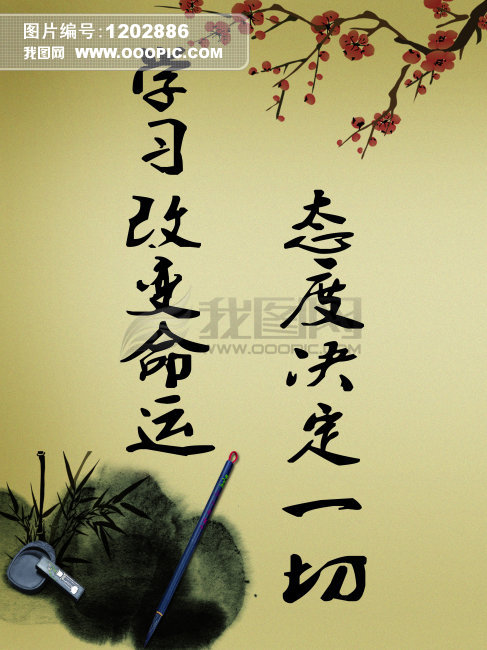 图片编号:1202886
我图网 www.OOOPIC.com
学习改变命运
态度决定一切
我图网
WWW.OOOPIC.COM